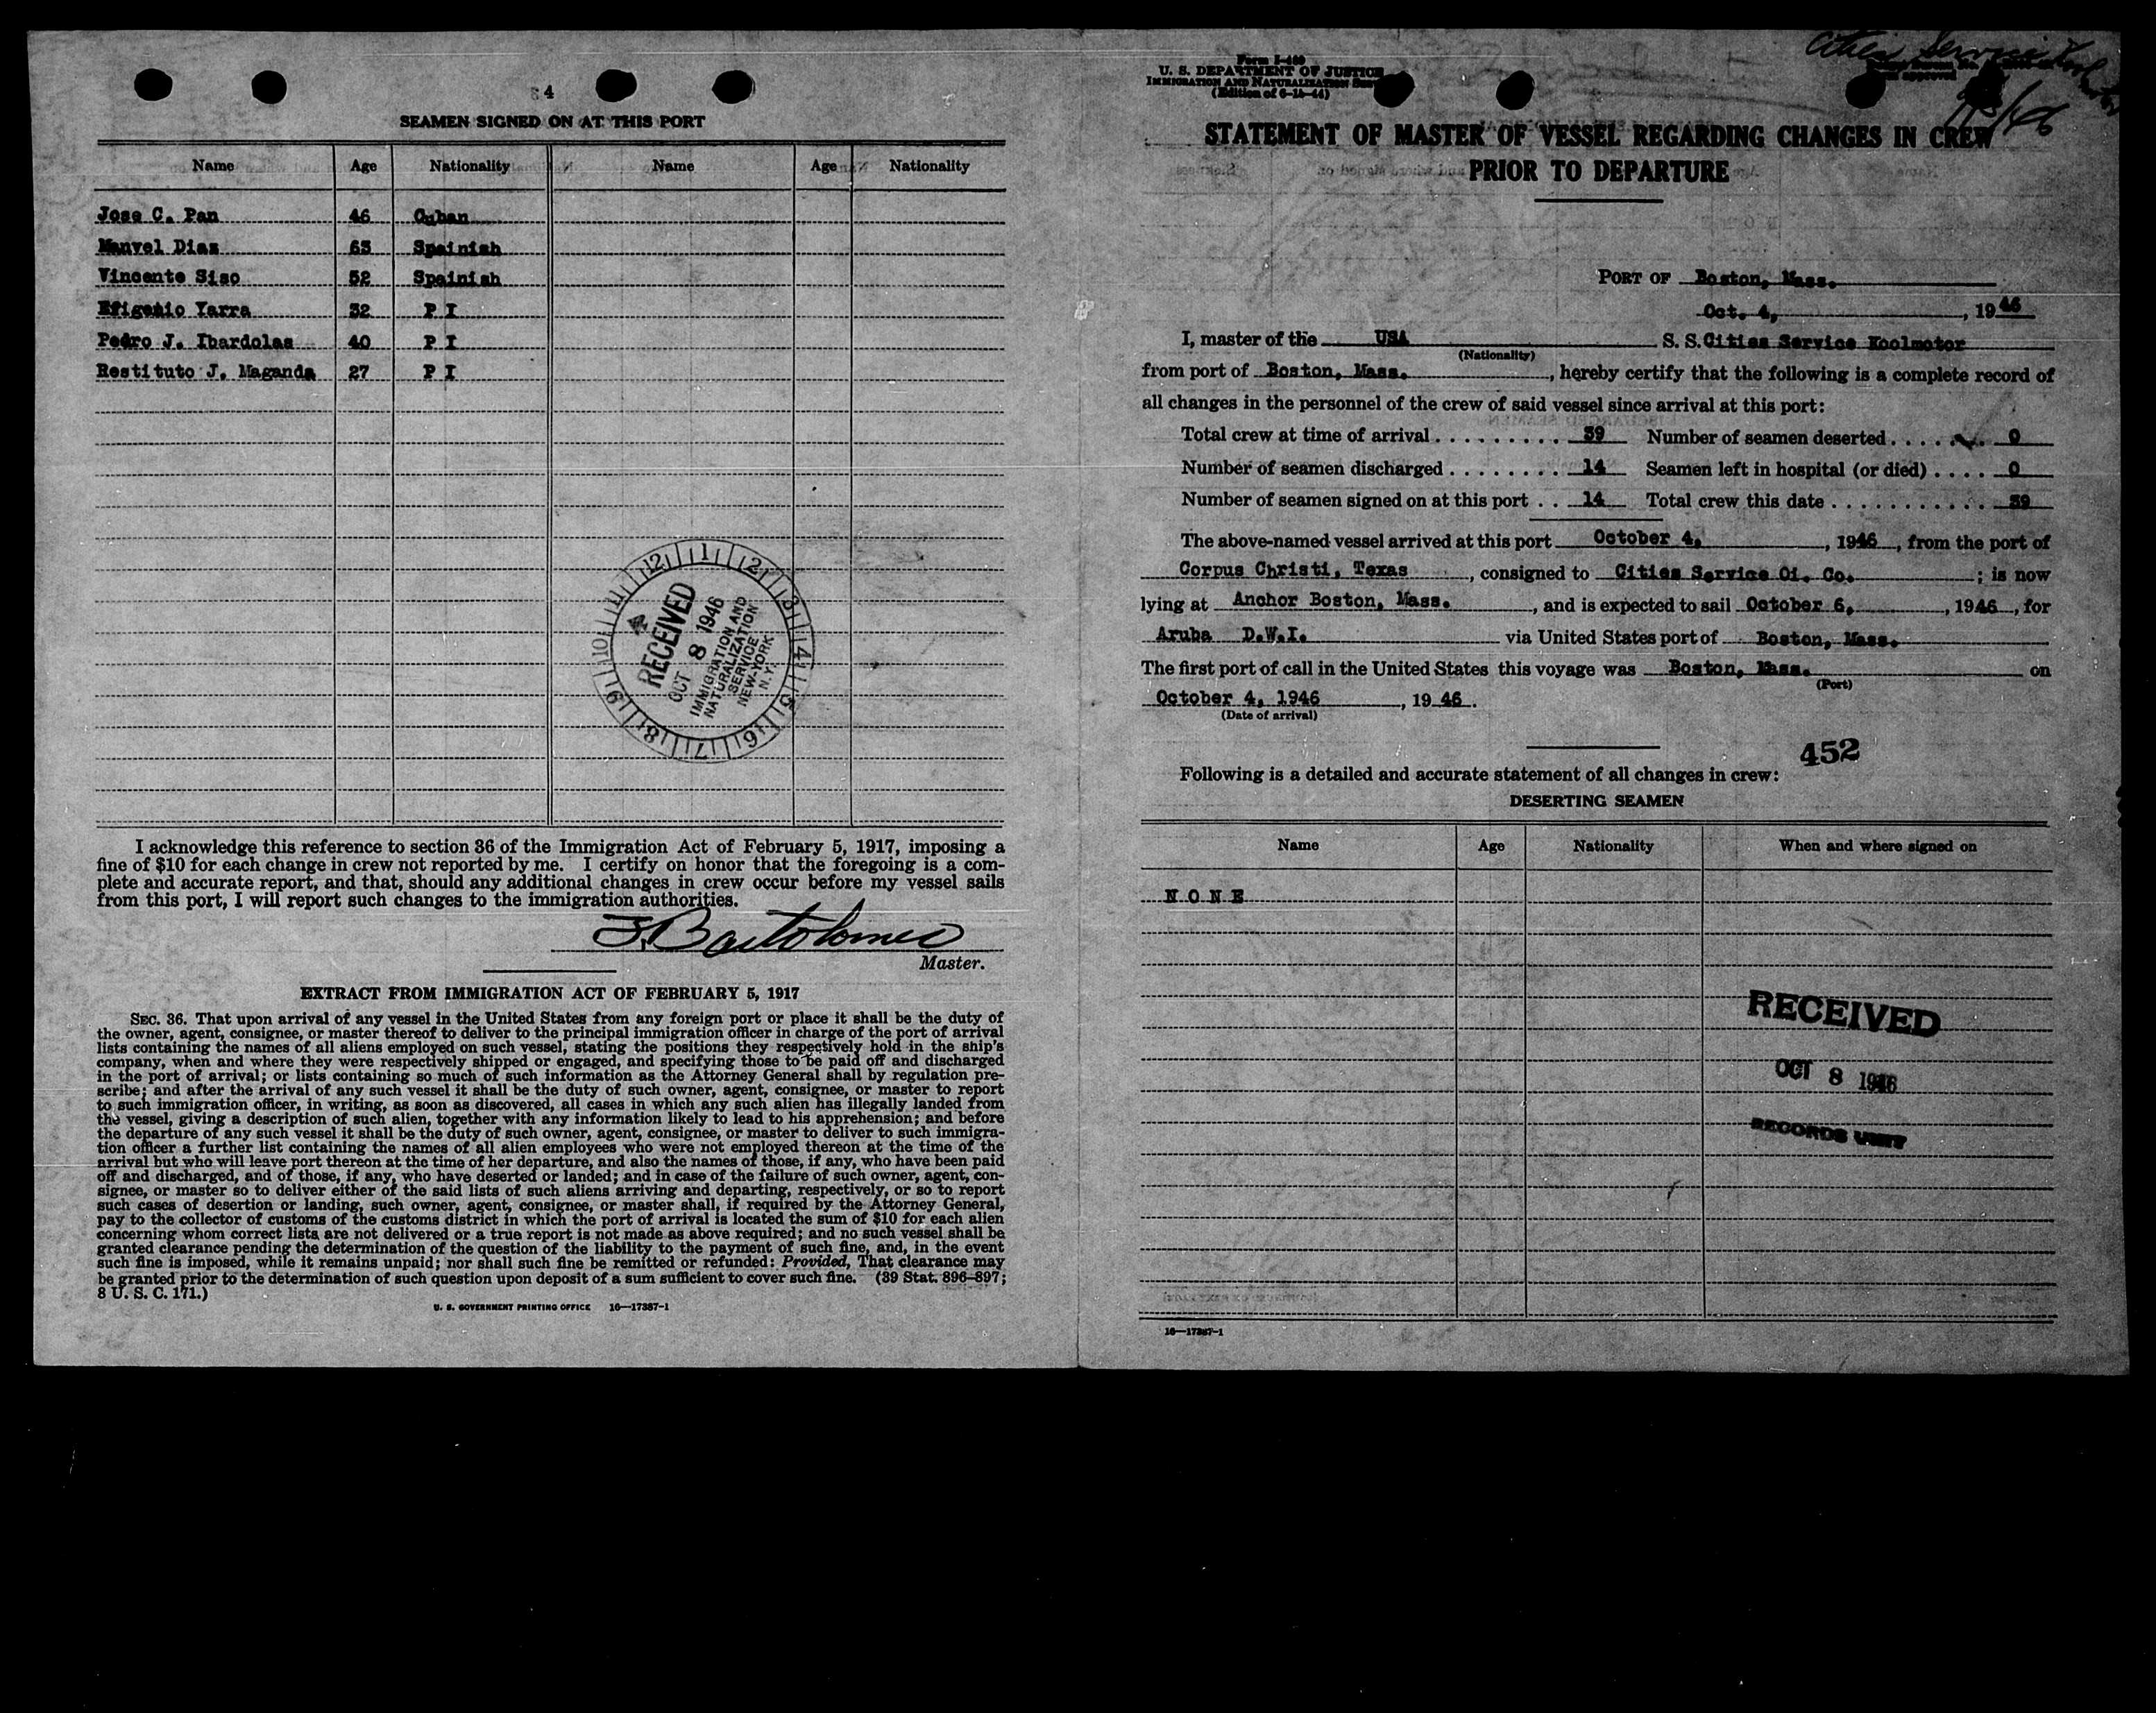 4
SEAMEN SIGNED ON AT THIS PORT
Name Age Nationality Name Age Nationality
Jose C. Pan 46 Cuban
Manvel Diaz 63 Spainish
Vincente Siso 52 Spainish
Efigenio Yarra 32 P I
Pedro J. Ibardolaa 40 P I
Restituto J. Maganda 27 P I
12 1 2 3 4 5 6 7 8 9 10 11
RECEIVED
OCT 8 1946
IMMIGRATION AND
NATURALIZATION
SERVICE
NEW-YORK
N.Y.
I acknowledge this reference to section 36 of the Immigration Act of February 5, 1917, imposing a
fine of $10 for each change in crew not reported by me. I certify on honor that the foregoing is a com-
plete and accurate report, and that, should any additional changes in crew occur before my vessel sails
from this port, I will report such changes to the immigration authorities.
Master.
EXTRACT FROM IMMIGRATION ACT OF FEBRUARY 5, 1917
SEC. 36. That upon arrival of any vessel in the United States from any foreign port or place it shall be the duty of
the owner, agent, consignee, or master thereof to deliver to the principal immigration officer in charge of the port of arrival
lists containing the names of all aliens employed on such vessel, stating the positions they respectively hold in the ship's
company, when and where they were respectively shipped or engaged, and specifying those to be paid off and discharged
in the port of arrival; or lists containing so much of such information as the Attorney General shall by regulation pre-
scribe; and after the arrival of any such vessel it shall be the duty of such owner, agent, consignee, or master to report
to such immigration officer, in writing, as soon as discovered, all cases in which any such alien has illegally landed from
the vessel, giving a description of such alien, together with any information likely to lead to his apprehension; and before
the departure of any such vessel it shall be the duty of such owner, agent, consignee, or master to deliver to such immigra-
tion officer a further list containing the names of all alien employees who were not employed thereon at the time of the
arrival but who will leave port thereon at the time of her departure, and also the names of those, if any, who have been paid
off and discharged, and of those, if any, who have deserted or landed; and in case of the failure of such owner, agent, con-
signee, or master so to deliver either of the said lists of such aliens arriving and departing, respectively, or so to report
such cases of desertion or landing, such owner, agent, consignee, or master shall, if required by the Attorney General,
pay to the collector of customs of the customs district in which the port of arrival is located the sum of $10 for each alien
concerning whom correct lists are not delivered or a true report is not made as above required; and no such vessel shall be
granted clearance pending the determination of the question of the liability to the payment of such fine, and, in the event
such fine is imposed, while it remains unpaid; nor shall such fine be remitted or refunded: Provided, That clearance may
be granted prior to the determination of such question upon deposit of a sum sufficient to cover such fine. (39 Stat. 896–897;
8 U. S. C. 171.)
U. S. GOVERNMENT PRINTING OFFICE 16—17387-1
U. S. DEPARTMENT OF JUSTICE
IMMIGRATION AND NATURALIZATION
(Edition of 6-14-44)
Cities Service
approved
STATEMENT OF MASTER OF VESSEL REGARDING CHANGES IN CREW
PRIOR TO DEPARTURE
PORT OF Boston, Mass.
Oct. 4, , 19 46
I, master of the USA S. S. Cities Service Koolmotor
(Nationality)
from port of Boston, Mass. , hereby certify that the following is a complete record of
all changes in the personnel of the crew of said vessel since arrival at this port:
Total crew at time of arrival . . . . . . . . . . 39 Number of seamen deserted . . . . . . . 0
Number of seamen discharged . . . . . . . . 14 Seamen left in hospital (or died) . . . . 0
Number of seamen signed on at this port . . 14 Total crew this date . . . . . . . . . . . . 39
The above-named vessel arrived at this port October 4, , 1946 , from the port of
Corpus Christi, Texas , consigned to Cities Service Oi. Co. ; is now
lying at Anchor Boston, Mass. , and is expected to sail October 6, , 1946 , for
Aruba D.W.I. via United States port of Boston, Mass.
The first port of call in the United States this voyage was Boston, Mass. on
(Port)
October 4, 1946 , 19 46 .
(Date of arrival)
452
Following is a detailed and accurate statement of all changes in crew:
DESERTING SEAMEN
Name Age Nationality When and where signed on
N O N E
RECEIVED
OCT 8 1946
RECORDS UNIT
16—17387-1